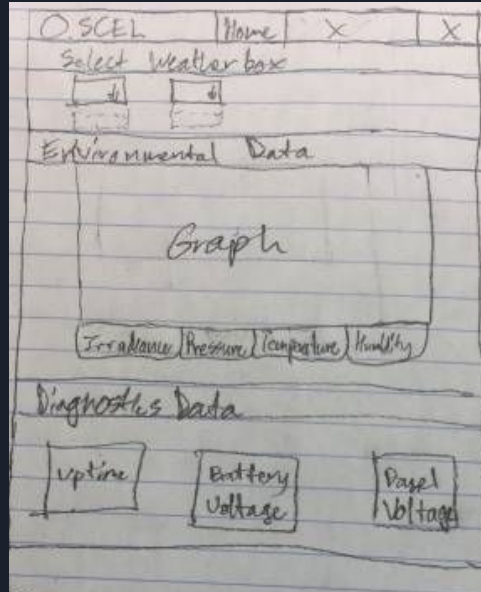 O SCEL Home X X
Select Weatherbox
Environmental Data
Graph
Irradiance Pressure Temperature Humidity
Diagnostics Data
Uptime Battery Voltage Panel Voltage